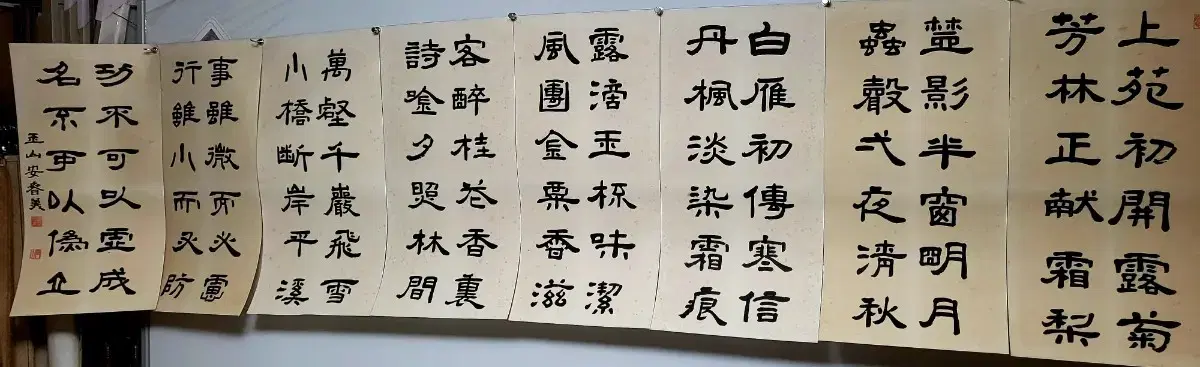 上苑初開露菊
芳林正献霜梨
影半窗明月
蟲聲弌夜清秋
白雁初傳寒信
丹楓淡染霜痕
露滴玉杯味潔
風團金粟香滋
客醉桂花香裏
詩唫夕照林間
萬壑千巖飛雪
小橋斷岸平溪
事雖微而必慮
行雖小而必防
功不可以虛成
名不可以偽立
玉山安春美